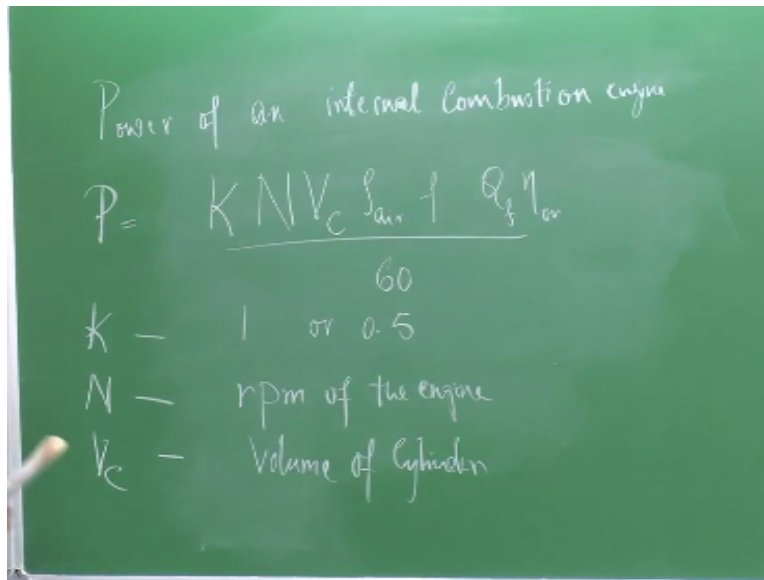 Power of an internal Combustion engine
P = K N V_c ρ_air f Q_f η_or
60
K - 1 or 0.5
N - rpm of the engine
V_c - Volume of Cylinder